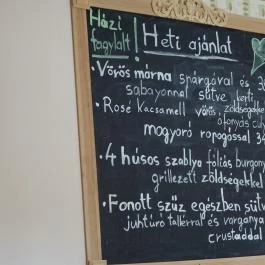 Házi
fagylalt!
Heti ajánlat
• Vörös márna spárgával és
sabayonnal sütve kerti
• Rosé Kacsamell vörös zöldségekkel
áfonyás
mogyoró ropogóssal 34
• 4 húsos szablya fóliás burgony
grillezett zöldségekkel
• Fonott szűz egészben sütv
juhtúró tallérral és vargánya
crustáddal